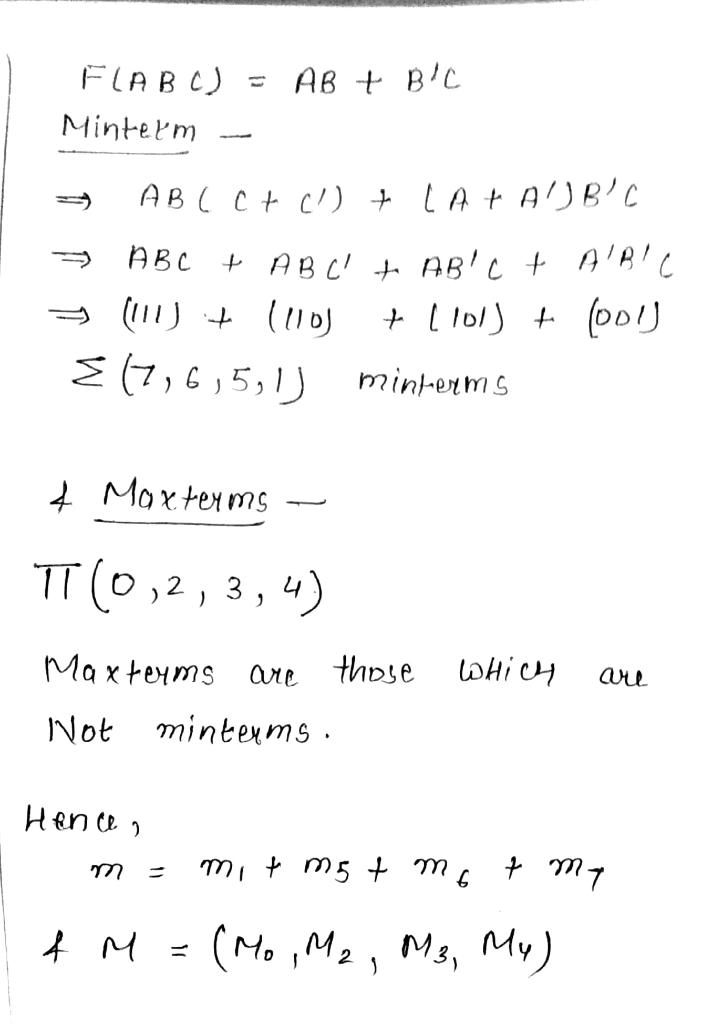 F(ABC) = AB + B'C
Minterm —
⇒ AB(C + C') + (A + A')B'C
⇒ ABC + ABC' + AB'C + A'B'C
⇒ (111) + (110) + (101) + (001)
Σ(7,6,5,1) minterms
& Maxterms —
Π(0,2,3,4)
Maxterms are those which are
Not minterms.
Hence,
m = m₁ + m₅ + m₆ + m₇
& M = (M₀, M₂, M₃, M₄)